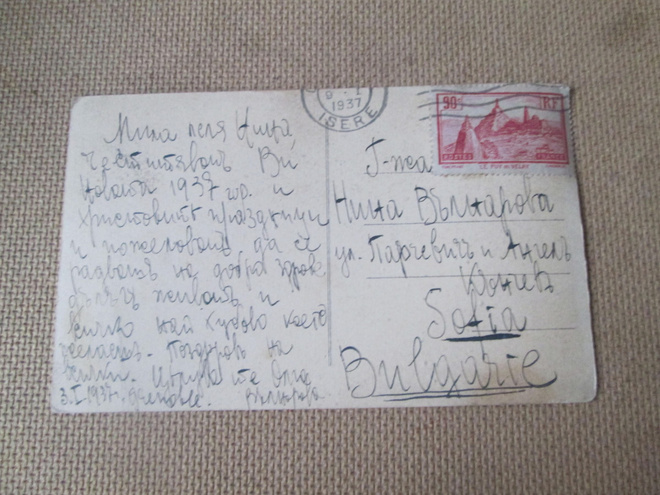 Мила леля Нина,
Честитявамъ Ви
Новата 1937 год. и
Христовитѣ празници
и пожелавамъ, да се
радвашъ на добро здраве
дълъгъ животъ и
всичко най хубаво което
желаешъ. Поздравъ на
всички.
3.I.1937. Гренобле. Вълнаровъ
9 - I
1937
ISERE
90c RF
POSTES FRANCE
LE PUY-EN-VELAY
Г-жа
Нина Вълнарова
ул. Парчевичъ и Ангелъ
Кънчевъ
Sofia
Bulgarie